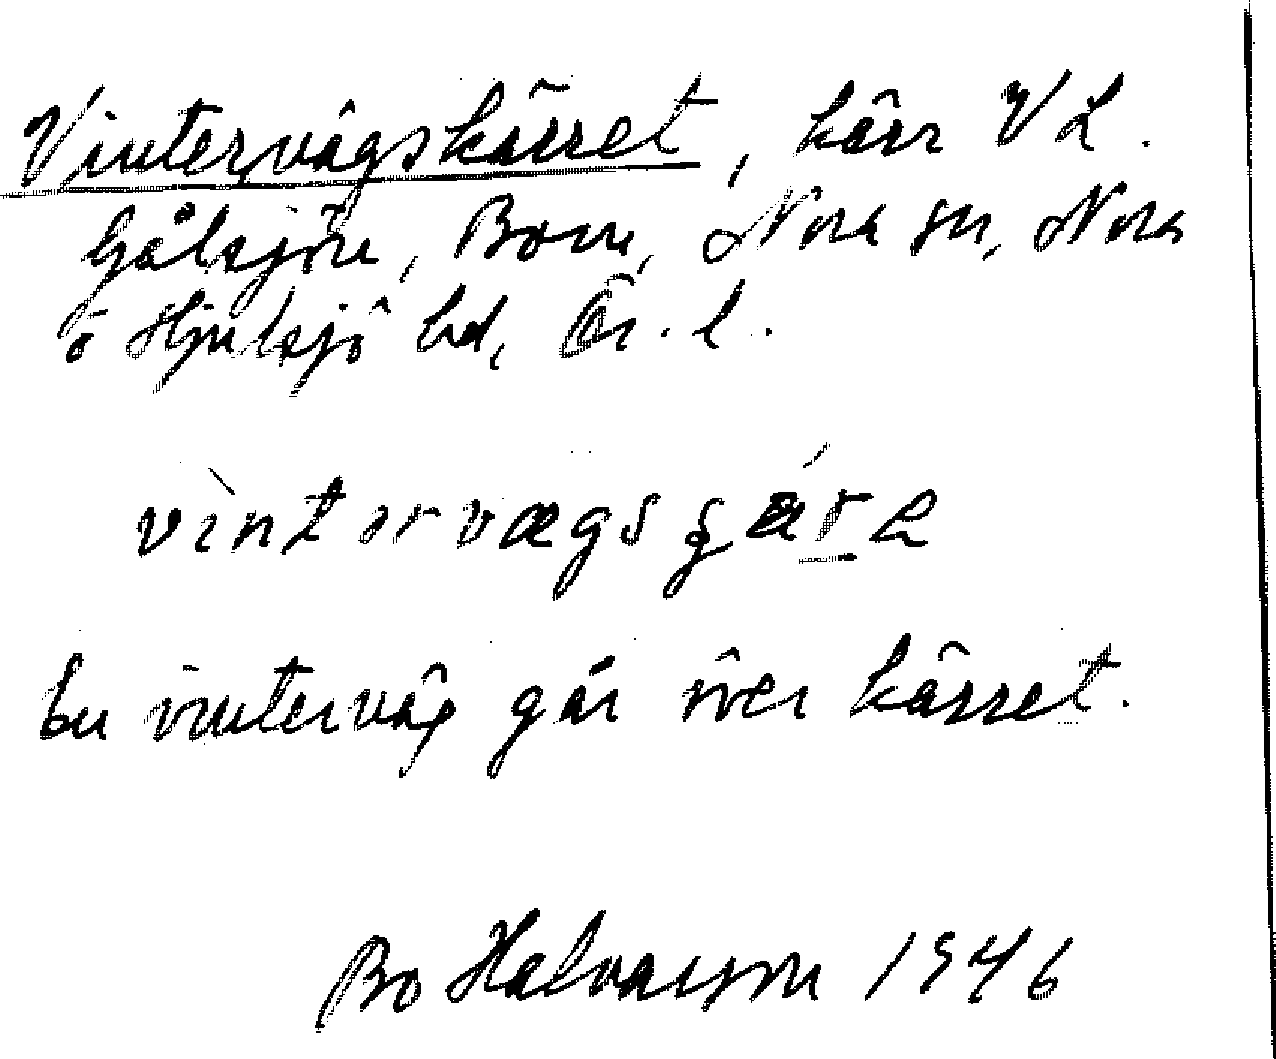 Vintervägskärret, kärr V L.
Gålsjön, Born, Nora sn, Nora
o Hjulsjö bd, Ör. l.
vintərvægsʂära
En vinterväg går över kärret.
Bo Halvarsson 1946